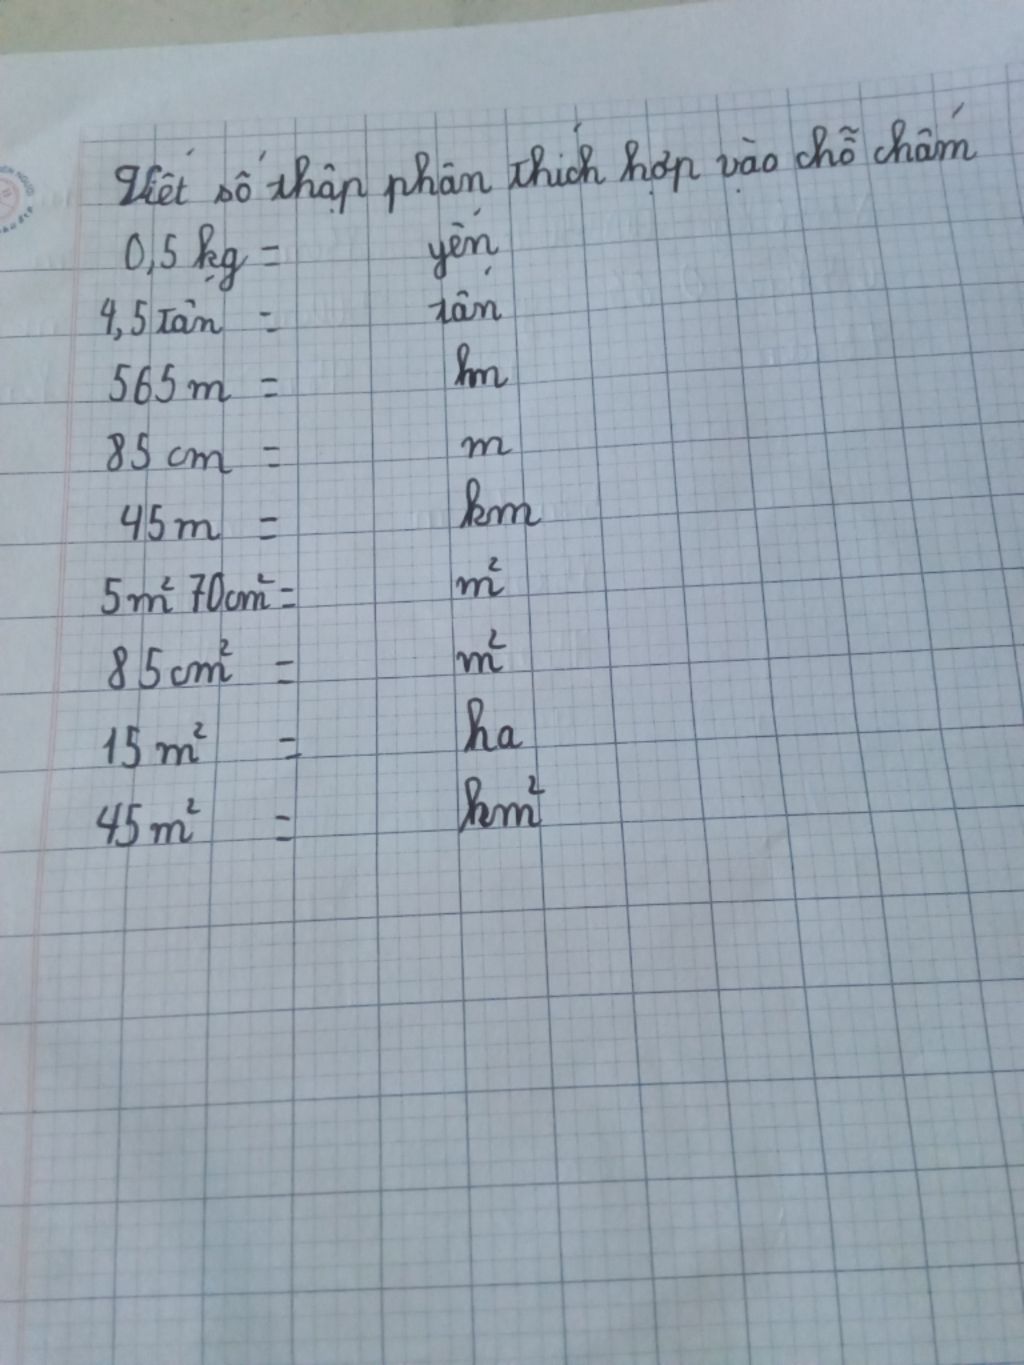 Viết số thập phân thích hợp vào chỗ chấm
0,5 kg = yến
4,5 tạn = tấn
565 m = hm
85 cm = m
45 m = km
5m² 70cm² = m²
85 cm² = m²
15 m² = ha
45 m² = km²